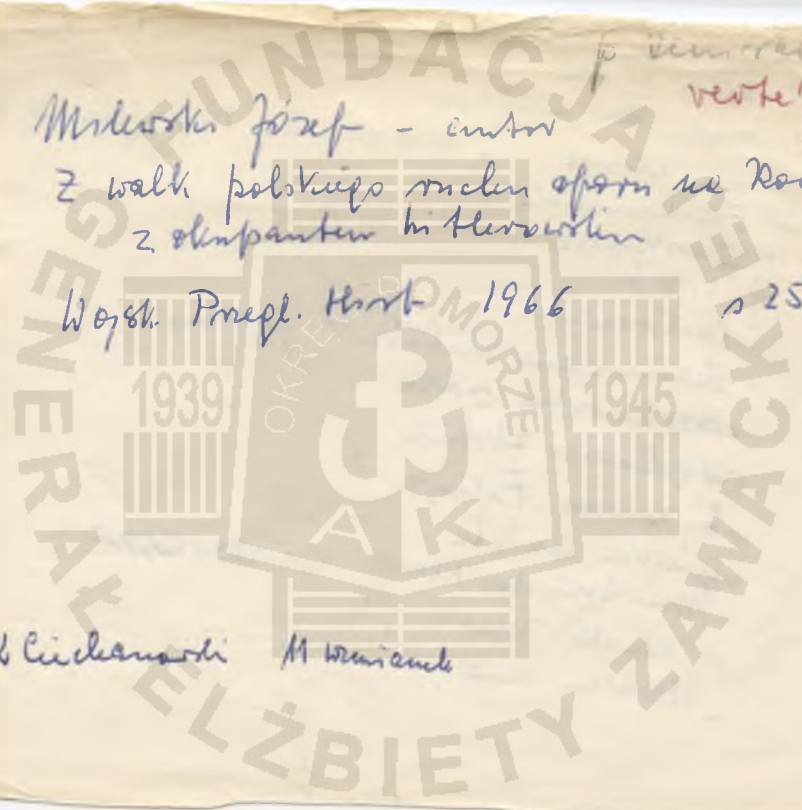 verte!
Milewski Józef – autor
Z walk polskiego ruchu oporu na
z okupantem hitlerowskim
Wojsk. Przegl. Hist 1966 s 25
Ciechanowski
FUNDACJA GENERAŁ ELŻBIETY ZAWACKIEJ
OKRĘG POMORZE
1939 1945
AK